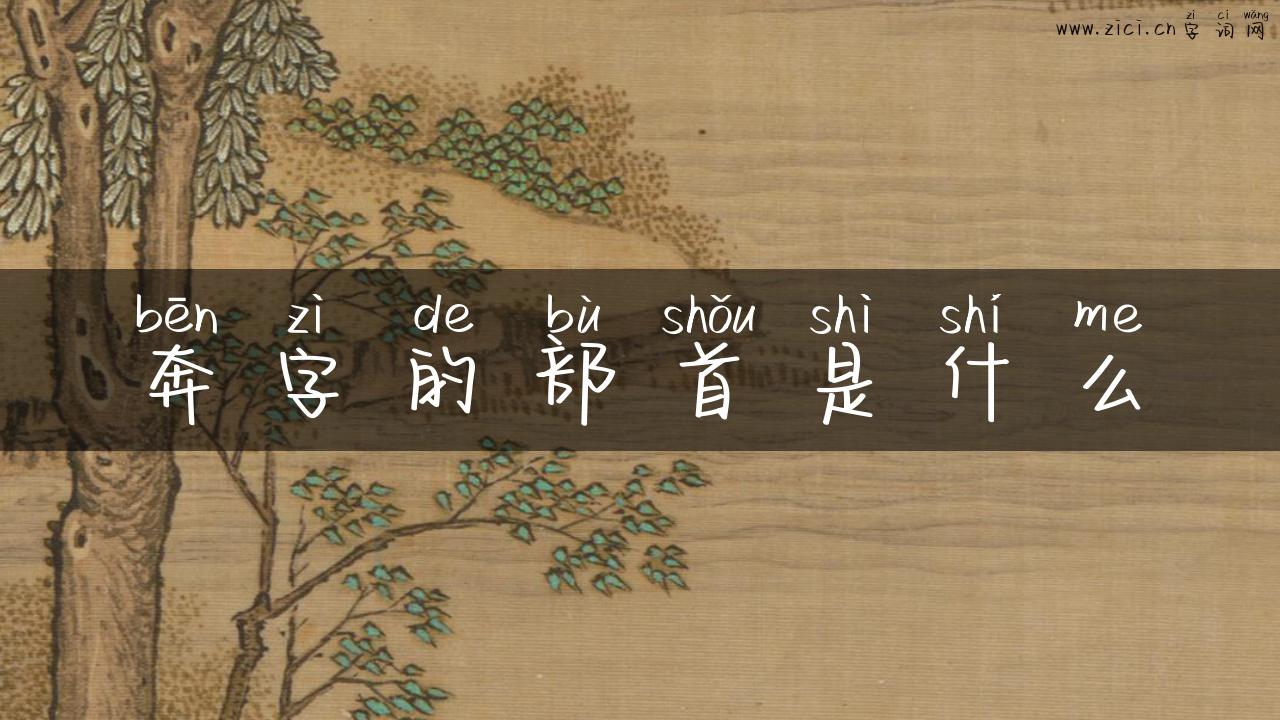 zì cí wǎng
www.zici.cn 字词网
bēn zì de bù shǒu shì shí me
奔字的部首是什么